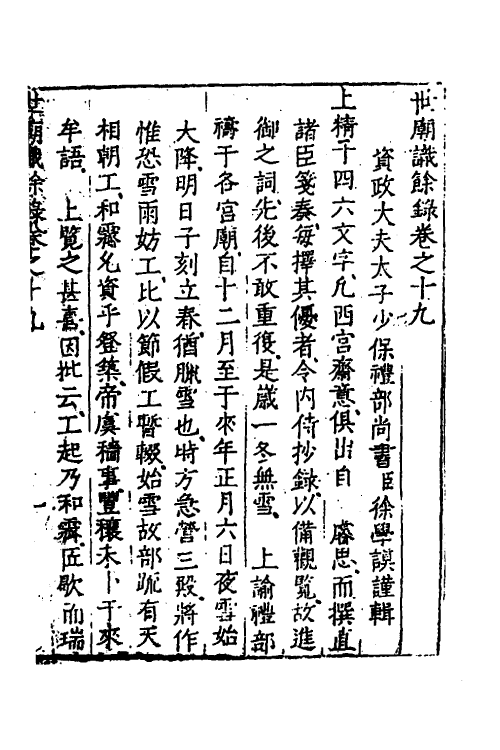 世廟識餘錄卷之十九
資政大夫太子少保禮部尚書臣徐學謨謹輯
上精于四六文字凡西宮齋意俱出自 睿思而撰直
諸臣箋奏每擇其優者令內侍抄錄以備觀覽故進
御之詞先後不敢重復是歲一冬無雪 上諭禮部
禱于各宮廟自十二月至于來年正月六日夜雪始
大降明日子刻立春猶臘雪也時方急營三殿將作
惟恐雪雨妨工比以節假工暫輟始雪故部疏有天
相朝工和霽允資乎登築帝虞穡事豐穰未卜于來
牟語 上覽之甚喜因批云工起乃和霽匠歇而瑞
世廟識餘錄卷之十九
一